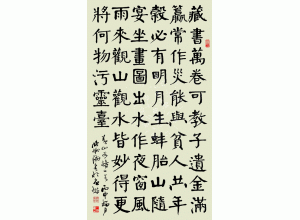 藏書萬卷可教子遺金滿
贏常作災能與貧人共年
穀必有明月生蚌胎山隨
宴坐畫圖出水作夜窗風
雨來觀山觀水皆妙得更
將何物污靈臺